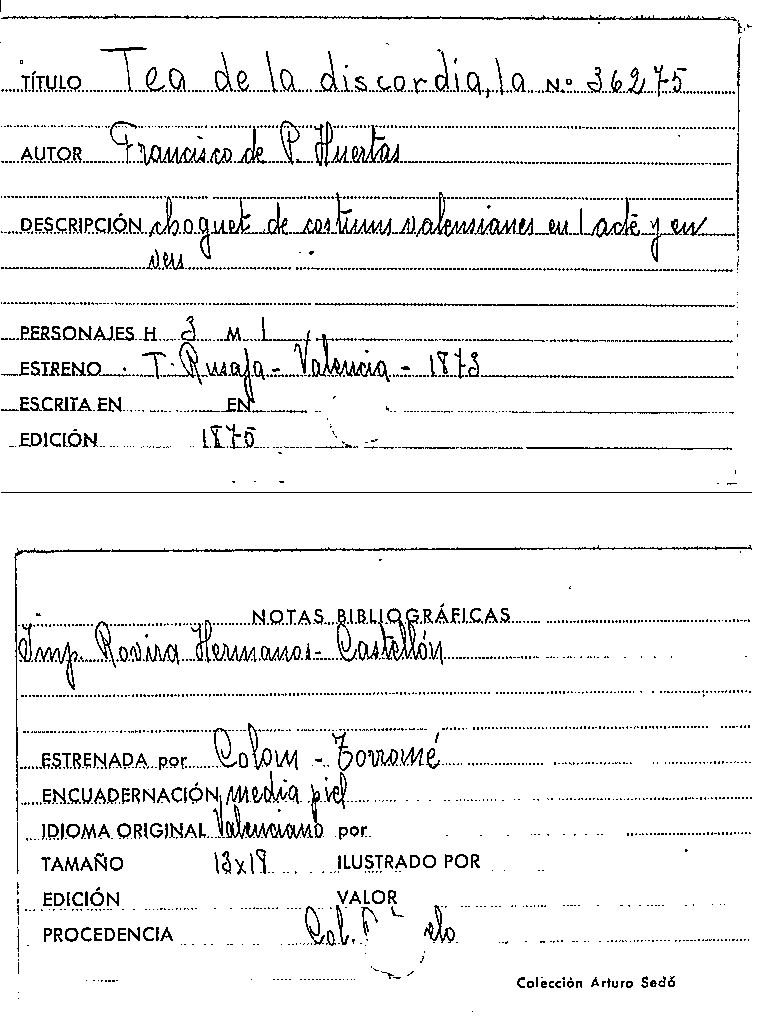 TÍTULO Tea de la discordia, la N.º 36275
AUTOR Francisco de P. Huertas
DESCRIPCIÓN choguet de costums valensianes en 1 acte y en
vers
PERSONAJES H 3 M 1
ESTRENO T. Rusafa - Valencia - 1873
ESCRITA EN EN
EDICIÓN 1875
NOTAS BIBLIOGRÁFICAS
Imp. Rovira Hermanos - Castellón
ESTRENADA por Colom - Torromé
ENCUADERNACIÓN media piel
IDIOMA ORIGINAL Valenciano por
TAMAÑO 13x19 ILUSTRADO POR
EDICIÓN VALOR
PROCEDENCIA Col.
Colección Arturo Sedó